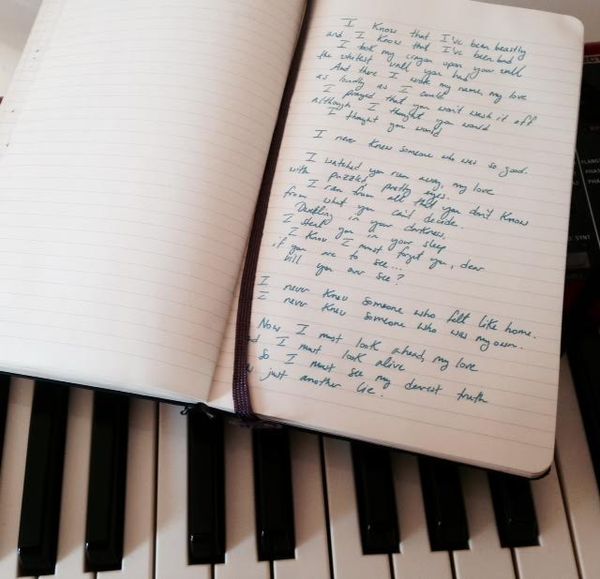 I know that I've been beastly
and I know that I've been bad
I took my crayon upon your wall
the whitest wall you had
And there I wrote my name, my love
as loudly as I could
I prayed that you won't wash it off
although I thought you would
I thought you would
I never knew someone who was so good.
I watched you run away, my love
with puzzled, pretty eyes.
I ran from all that you don't know
from what you can't decide.
Dwelling in your darkness,
I steal you in your sleep
I know I must forget you, dear
if you are to see...
Will you ever see?
I never knew someone who felt like home.
I never knew someone who was my own.
Now I must look ahead, my love
nd I must look alive
so I must see my dearest truth
s just another lie.